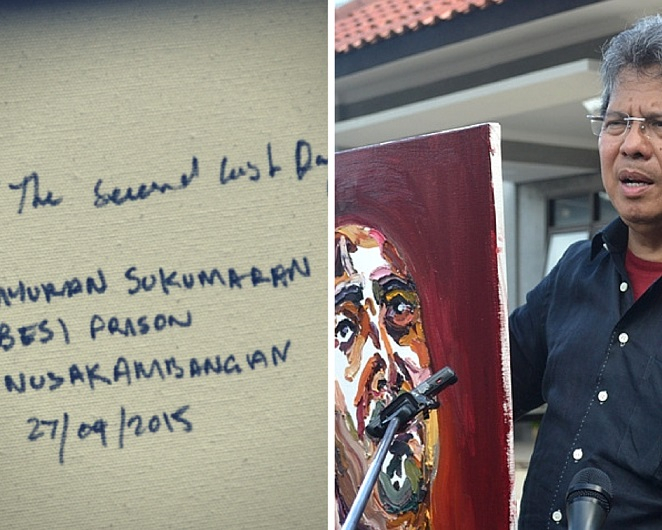 The Second Last Da
AYURAN SUKUMARAN
BESI PRASON
NUSAKAMBANGAN
27/04/2015